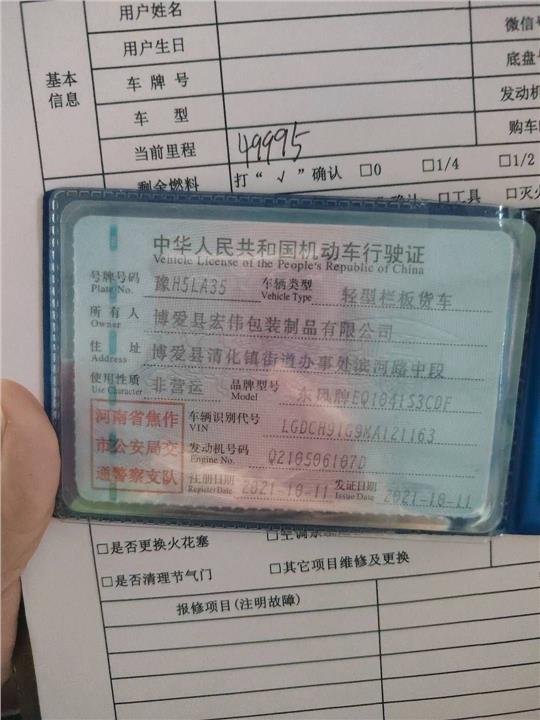 用户姓名
微信号
用户生日
基本信息
车牌号
车型
发动机
当前里程 49995
剩余燃料 打“√”确认 □0 □1/4 □1/2
□工具 □灭火
中华人民共和国机动车行驶证
Vehicle License of the People's Republic of China
号牌号码 豫H5LA35 车辆类型 轻型栏板货车
Plate No. Vehicle Type
所有人 博爱县宏伟包装制品有限公司
Owner
住址 博爱县清化镇街道办事处滨河路中段
Address
使用性质 非营运 品牌型号 东风牌EQ1041S3CDF
Use Character Model
河南省焦作
市公安局交
通警察支队
车辆识别代号 LGDCH91G9MA121163
VIN
发动机号码 Q210506187D
Engine No.
注册日期 2021-10-11 发证日期 2021-10-11
Register Date Issue Date
□是否更换火花塞
□是否清理节气门 □其它项目维修及更换
报修项目(注明故障)